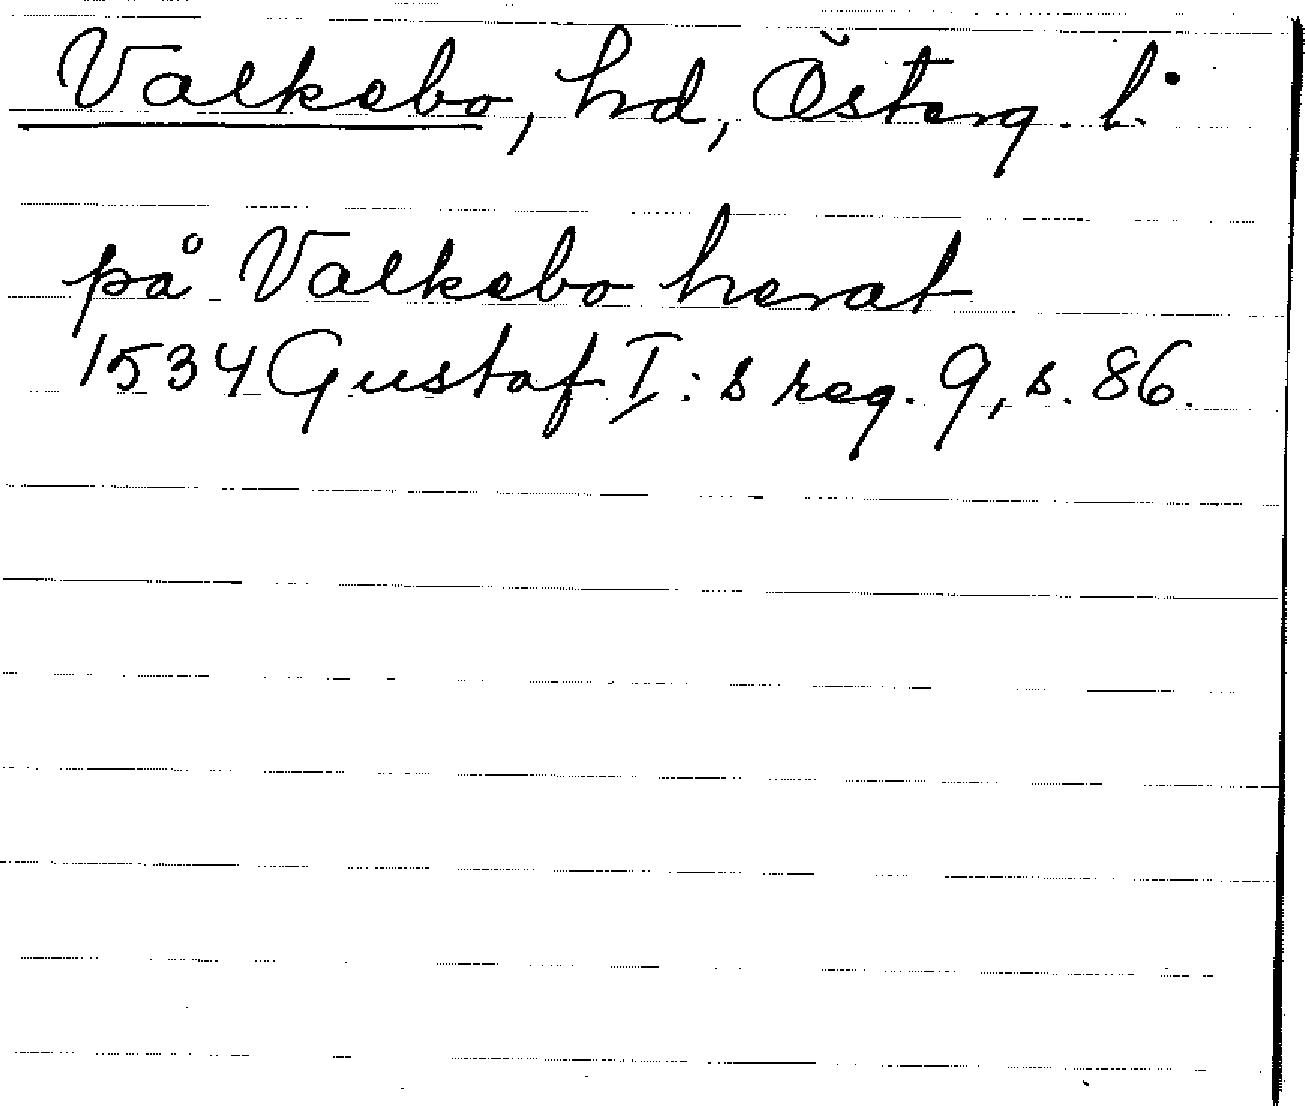 Valkebo, hd, Österg. l.
på Valkebo herat
1534 Gustaf I:s reg. 9, s. 86.